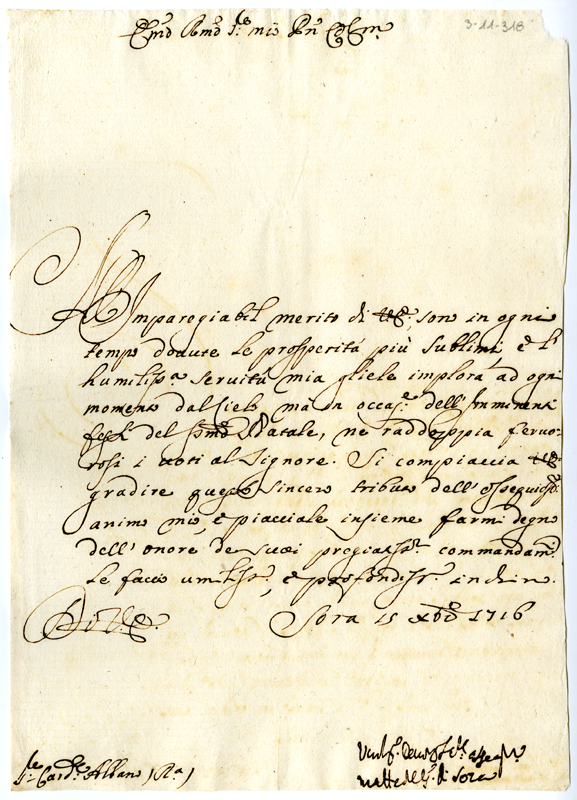 3-11-318
Em̃o Rm̃o Sig.re mio Pñ Col.mo
All'Imparegiabil merito di V.E. sono in ogni
tempo douute le prosperità più sublimi, e l'
humiliss.a seruitù mia gliele implora ad ogni
momento dal Cielo, mà in occas.e dell'Imminenti
feste del Ss.mo Natale, ne raddoppia feruo-
rosi i uoti al Signore. Si compiaccia V.E.
gradire questo sincero tributo dell'ossequios.o
animo mio, e piacciale insieme farmi degno
dell'onore de suoi pregiatiss.i commandam.ti
le faccio umiliss.a, e profondiss.a inchin.
Di V.E.
Sora 15 Xbre 1716
S.re Card.le Albano (Ra)
di Sora